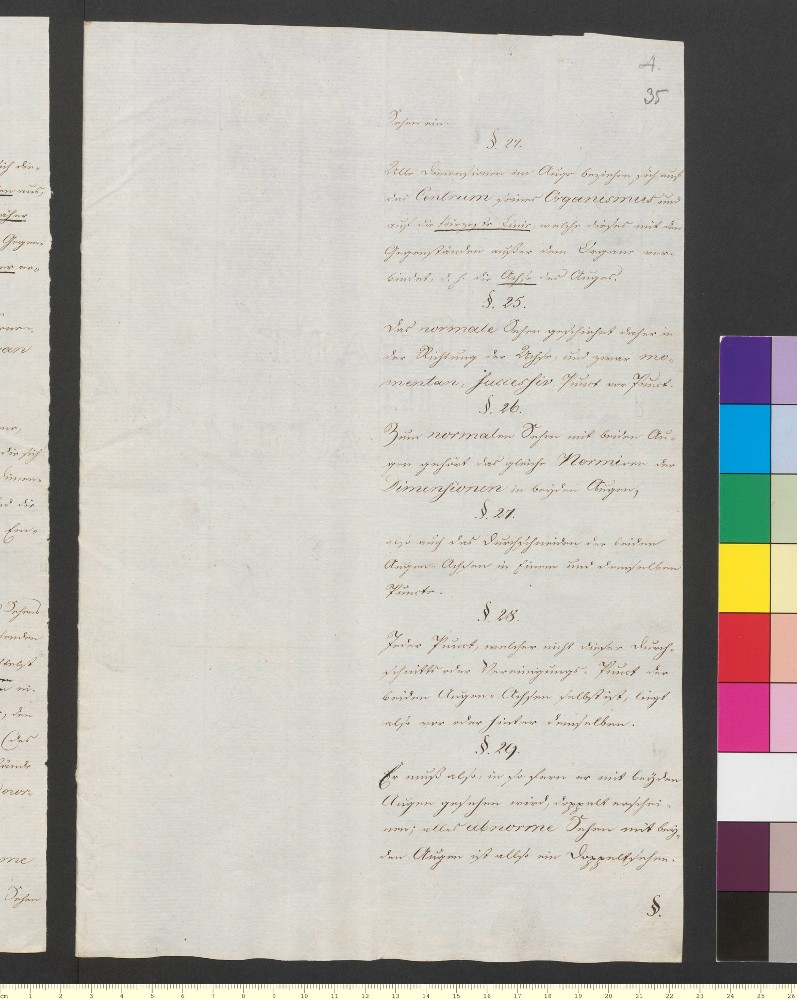 4.
35
Sehen ein.
§. 24.
Alle Dimensionen im Auge beziehen sich auf
das Centrum seines Organismus und
auf die kürzeste Linie, welche dieses mit den
Gegenständen außer dem Organe ver-
bindet, d. h. die Achse des Auges.
§. 25.
Das normale Sehen geschieht daher in
der Richtung der Achse, und zwar mo-
mentan, successiv, Punct vor Punct.
§. 26.
Zum normalen Sehen mit beiden Au-
gen gehört das gleiche Normiren der
Dimensionen in beyden Augen,
§. 27.
also auch das Durchschneiden der beiden
Augen-Achsen in Einem und demselben
Puncte.
§. 28.
Jeder Punct, welcher nicht dieser Durch-
schnitts oder Vereinigungs-Punct der
beiden Augen-Achsen selbst ist, liegt
also vor oder hinter demselben.
§. 29.
Er muß also, in so fern er mit beyden
Augen gesehen wird, doppelt erschei-
nen; alles abnorme Sehen mit bey-
den Augen ist also ein Doppeltsehen.
§.